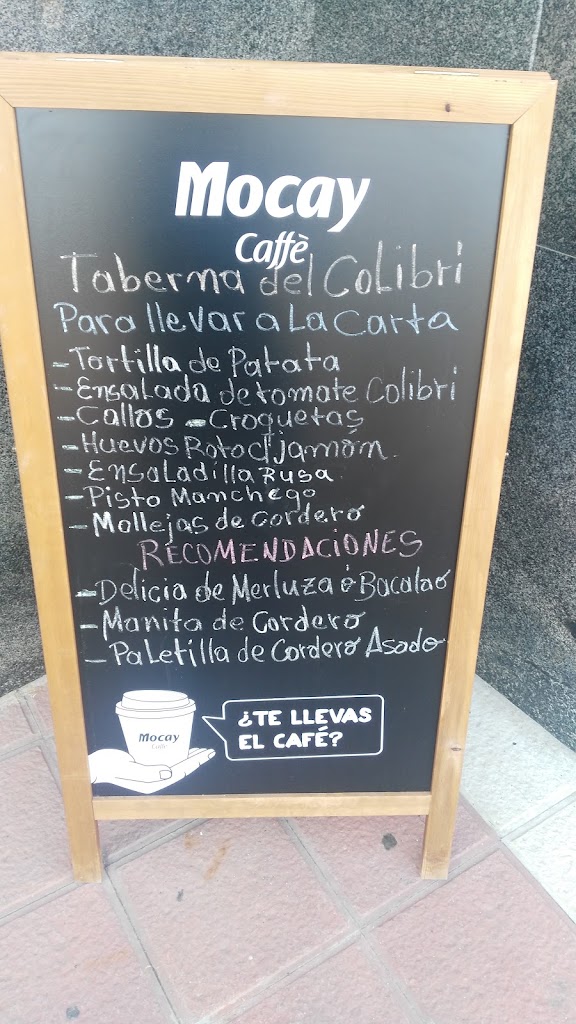 Mocay
Caffè
Taberna del Colibri
Para llevar a La Carta
- Tortilla de Patata
- Ensalada de tomate Colibri
- Callos - Croquetas
- Huevos Roto c/jamon.
- Ensaladilla Rusa
- Pisto Manchego
- Mollejas de Cordero
RECOMENDACIONES
- Delicia de Merluza o Bacalao
- Manita de Cordero
- Paletilla de Cordero Asado
Mocay
Caffè
¿TE LLEVAS
EL CAFÉ?